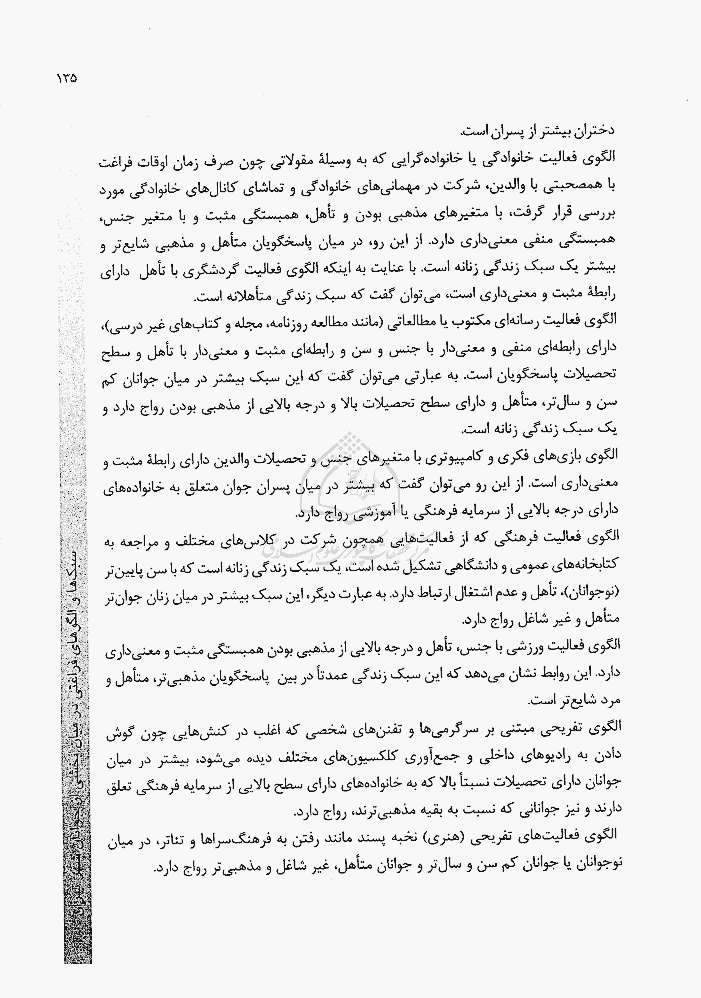 ۱۳۵
دختران بیشتر از پسران است.
الگوی فعالیت خانوادگی یا خانواده‌گرایی که به وسیلهٔ مقولاتی چون صرف زمان اوقات فراغت
با همصحبتی با والدین، شرکت در مهمانی‌های خانوادگی و تماشای کانال‌های خانوادگی مورد
بررسی قرار گرفت، با متغیرهای مذهبی بودن و تأهل، همبستگی مثبت و با متغیر جنس،
همبستگی منفی معنی‌داری دارد. از این رو، در میان پاسخگویان متأهل و مذهبی شایع‌تر و
بیشتر یک سبک زندگی زنانه است. با عنایت به اینکه الگوی فعالیت گردشگری با تأهل دارای
رابطهٔ مثبت و معنی‌داری است، می‌توان گفت که سبک زندگی متأهلانه است.
الگوی فعالیت رسانه‌ای مکتوب یا مطالعاتی (مانند مطالعه روزنامه، مجله و کتاب‌های غیر درسی)،
دارای رابطه‌ای منفی و معنی‌دار با جنس و سن و رابطه‌ای مثبت و معنی‌دار با تأهل و سطح
تحصیلات پاسخگویان است. به عبارتی می‌توان گفت که این سبک بیشتر در میان جوانان کم
سن و سال‌تر، متأهل و دارای سطح تحصیلات بالا و درجه بالایی از مذهبی بودن رواج دارد و
یک سبک زندگی زنانه است.
الگوی بازی‌های فکری و کامپیوتری با متغیرهای جنس و تحصیلات والدین دارای رابطهٔ مثبت و
معنی‌داری است. از این رو می‌توان گفت که بیشتر در میان پسران جوان متعلق به خانواده‌های
دارای درجه بالایی از سرمایه فرهنگی یا آموزشی رواج دارد.
الگوی فعالیت فرهنگی که از فعالیت‌هایی همچون شرکت در کلاس‌های مختلف و مراجعه به
کتابخانه‌های عمومی و دانشگاهی تشکیل شده است، یک سبک زندگی زنانه است که با سن پایین‌تر
(نوجوانان)، تأهل و عدم اشتغال ارتباط دارد. به عبارت دیگر، این سبک بیشتر در میان زنان جوان‌تر
متأهل و غیر شاغل رواج دارد.
الگوی فعالیت ورزشی با جنس، تأهل و درجه بالایی از مذهبی بودن همبستگی مثبت و معنی‌داری
دارد. این روابط نشان می‌دهد که این سبک زندگی عمدتاً در بین پاسخگویان مذهبی‌تر، متأهل و
مرد شایع‌تر است.
الگوی تفریحی مبتنی بر سرگرمی‌ها و تفنن‌های شخصی که اغلب در کنش‌هایی چون گوش
دادن به رادیوهای داخلی و جمع‌آوری کلکسیون‌های مختلف دیده می‌شود، بیشتر در میان
جوانان دارای تحصیلات نسبتاً بالا که به خانواده‌های دارای سطح بالایی از سرمایه فرهنگی تعلق
دارند و نیز جوانانی که نسبت به بقیه مذهبی‌ترند، رواج دارد.
الگوی فعالیت‌های تفریحی (هنری) نخبه پسند مانند رفتن به فرهنگ‌سراها و تئاتر، در میان
نوجوانان یا جوانان کم سن و سال‌تر و جوانان متأهل، غیر شاغل و مذهبی‌تر رواج دارد.
سبک‌ها و الگوهای فراغتی در میان